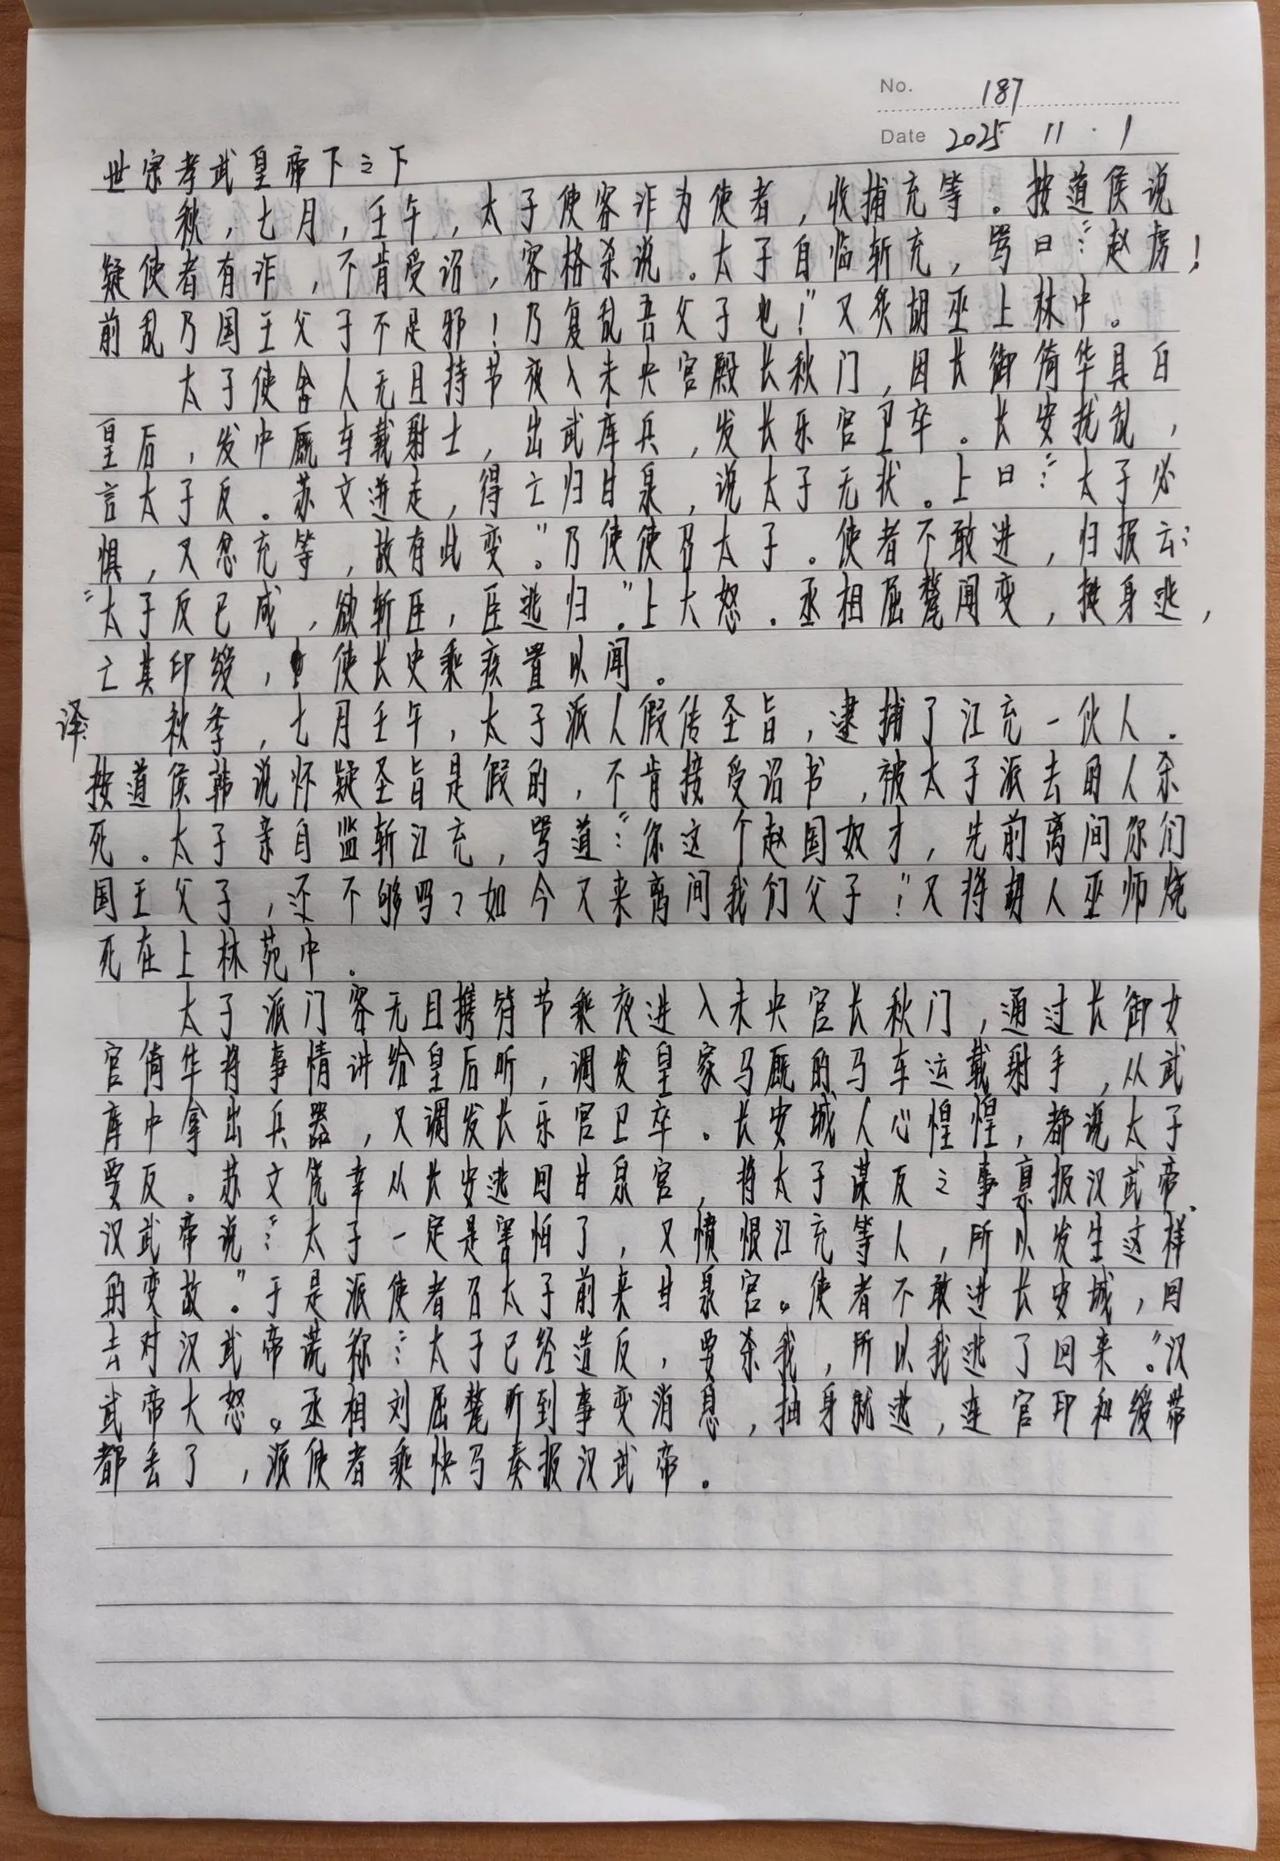 No. 187
Date 2025 11 . 1
世宗孝武皇帝下之下
秋，七月，壬午，太子使客诈为使者，收捕充等。按道侯说
疑使者有诈，不肯受诏，客格杀说。太子自临斩充，骂曰：“赵虏！
前乱乃国王父子不足邪！乃复乱吾父子也！”又炙胡巫上林中。
太子使舍人无且持节夜入未央宫殿长秋门，因长御倚华具白
皇后，发中厩车载射士，出武库兵，发长乐宫卫卒。长安扰乱，
言太子反。苏文迸走，得亡归甘泉，说太子无状。上曰：“太子必
惧，又忿充等，故有此变。”乃使使召太子。使者不敢进，归报云：
“太子反已成，欲斩臣，臣逃归。”上大怒。丞相屈氂闻变，挺身逃，
亡其印绶，使长史乘疾置以闻。
译 秋季，七月壬午，太子派人假传圣旨，逮捕了江充一伙人。
按道侯韩说怀疑圣旨是假的，不肯接受诏书，被太子派去的人杀
死。太子亲自监斩江充，骂道：“你这个赵国奴才，先前离间你们
国王父子，还不够吗？如今又来离间我们父子！”又将胡人巫师烧
死在上林苑中。
太子派门客无且携符节乘夜进入未央宫长秋门，通过长御女
官倚华将事情讲给皇后听，调发皇家马厩的马车运载射手，从武
库中拿出兵器，又调发长乐宫卫卒。长安城人心惶惶，都说太子
要反。苏文侥幸从长安逃回甘泉宫，将太子谋反之事禀报汉武帝、
汉武帝说：“太子一定是害怕了，又愤恨江充等人，所以发生这样
的变故。”于是派使者召太子前来甘泉宫。使者不敢进长安城，回
去对汉武帝谎称：“太子已经造反，要杀我，所以我逃了回来。”汉
武帝大怒。丞相刘屈氂听到事变消息，抽身就逃，连官印和绶带
都丢了，派使者乘快马奏报汉武帝。